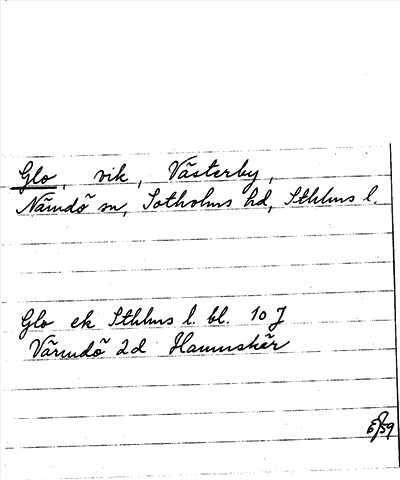 Glo, vik, Västerby,
Nämdö sn, Sotholms hd, Sthlms l.
Glo ek Sthlms l. bl. 10 J
Värmdö 2d Hamnskär
5/59